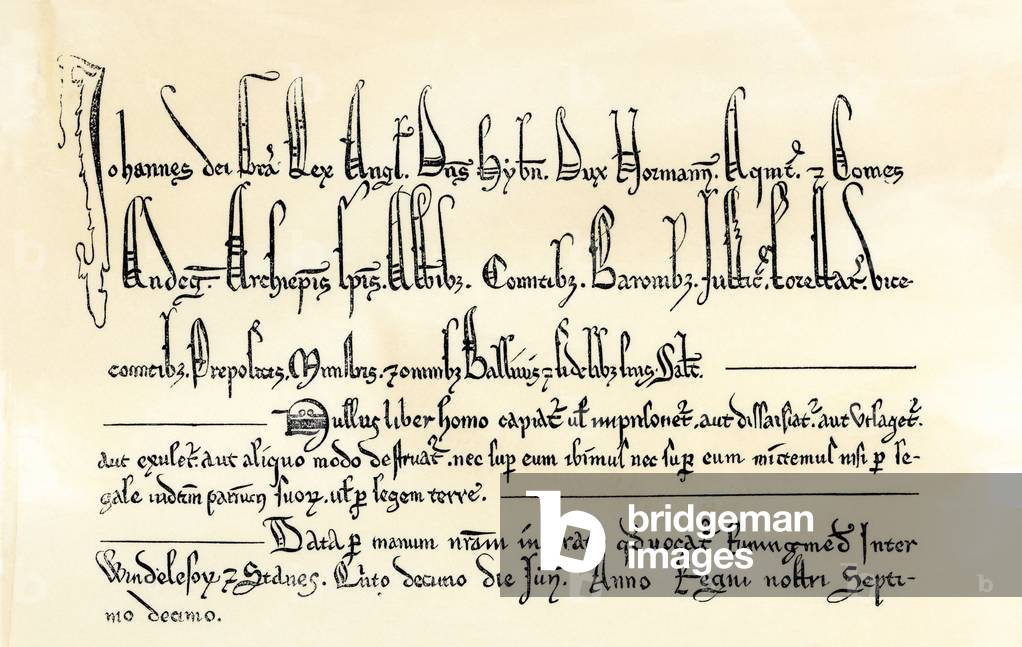 Johannes dei Grã Rex Angł. Dñs Hybñ. Dux Normañ. Aqiut̃. ⁊ Comes
Andeg̃. Archiepis̃ Epis̃. Abbibȝ. Comitibȝ. Baronibȝ. Justic̃. forestar̃. vice-
comitibȝ. Prepositis. Ministris. ⁊ omnibȝ Ballivis ⁊ fidelibȝ suis. Salt̃.
Nullus liber homo capiat̃ ul̃ imprisonet̃. aut dissaisiat̃. aut Utlaget̃.
aut exulet̃. aut aliquo modo destruat̃. nec suꝑ eum ibimus nec suꝑ eum mittemus nisi ꝑ le-
gale iudiciũ parium suoꝝ. ul̃ ꝑ legem terre.
Data ꝑ manum nr̃am in prat q̃ vocat̃ Runingmed̃ Inter
Windelesoȝ ⁊ Stanes. Quito decimo die Juñ. Anno Regni nostri Septi-
mo decimo.
bridgeman
images